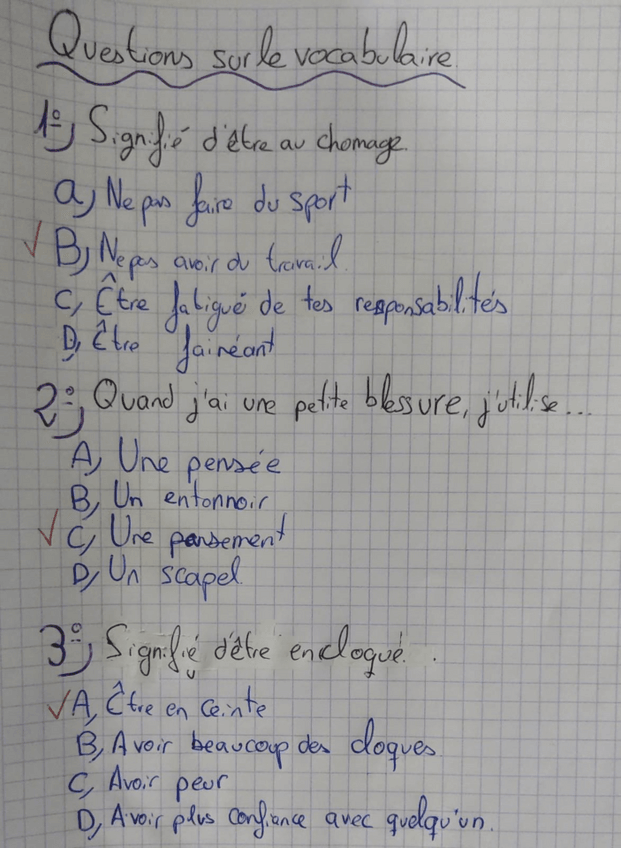 Questions sur le vocabulaire.
1º) Signifié d'être au chomage.
a) Ne pas faire du sport
B) Ne pas avoir du travail.
C) Être fatigué de tes responsabilités
D) Être fainéant
2º) Quand j'ai une petite blessure, j'utilise...
A) Une pensée
B) Un entonnoir
C) Une pansement
D) Un scapel.
3º) Signifié d'être encloqué.
A) Être en ceinte
B) Avoir beaucoup des cloques
C) Avoir peur
D) Avoir plus confiance avec quelqu'un.